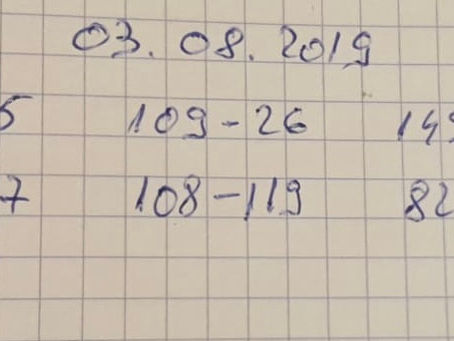 03. 08. 2019
5 109-26 149
7 108-119 82